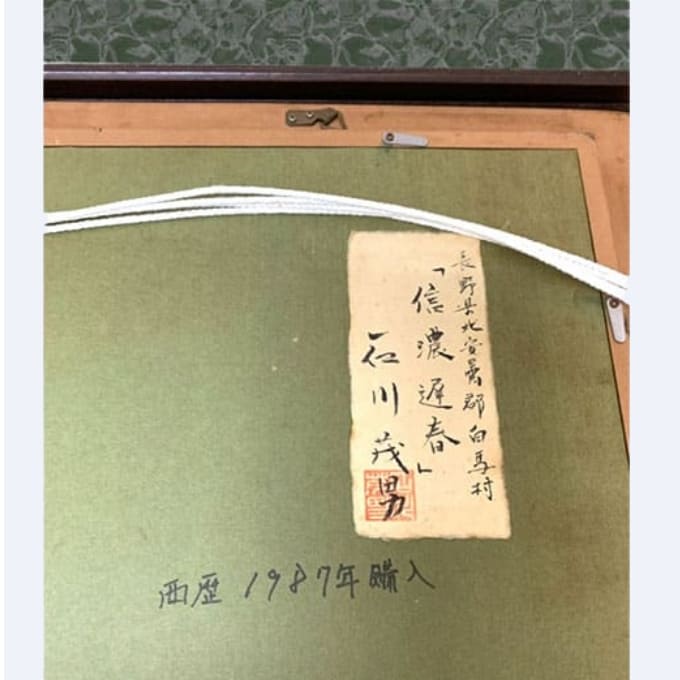 長野県北安曇郡白馬村
「信濃遅春」
石川茂男
西歴1987年購入